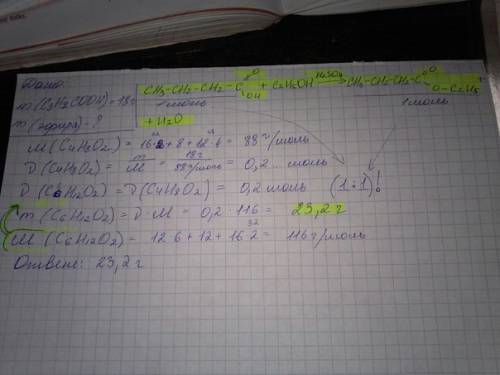 Дано:
m(C3H7COOH)=18г
m(эфира)-?
CH3-CH2-CH2-C=O OH + C2H5OH H2SO4→ CH3-CH2-CH2-C=O O-C2H5 +
1 моль 1 моль
+ H2O
M(C4H8O2) = 16·2+8+12·4 = 88 г/моль
υ(C4H8O2) = m/M = 18г/88г/моль = 0,2... моль
υ(C6H12O2) = υ(C4H8O2) = 0,2 моль (1:1)!
m(C6H12O2) = υ·M = 0,2·116 = 23,2 г
M(C6H12O2) = 12·6+12+16·2 = 116 г/моль
32
Ответ: 23,2 г